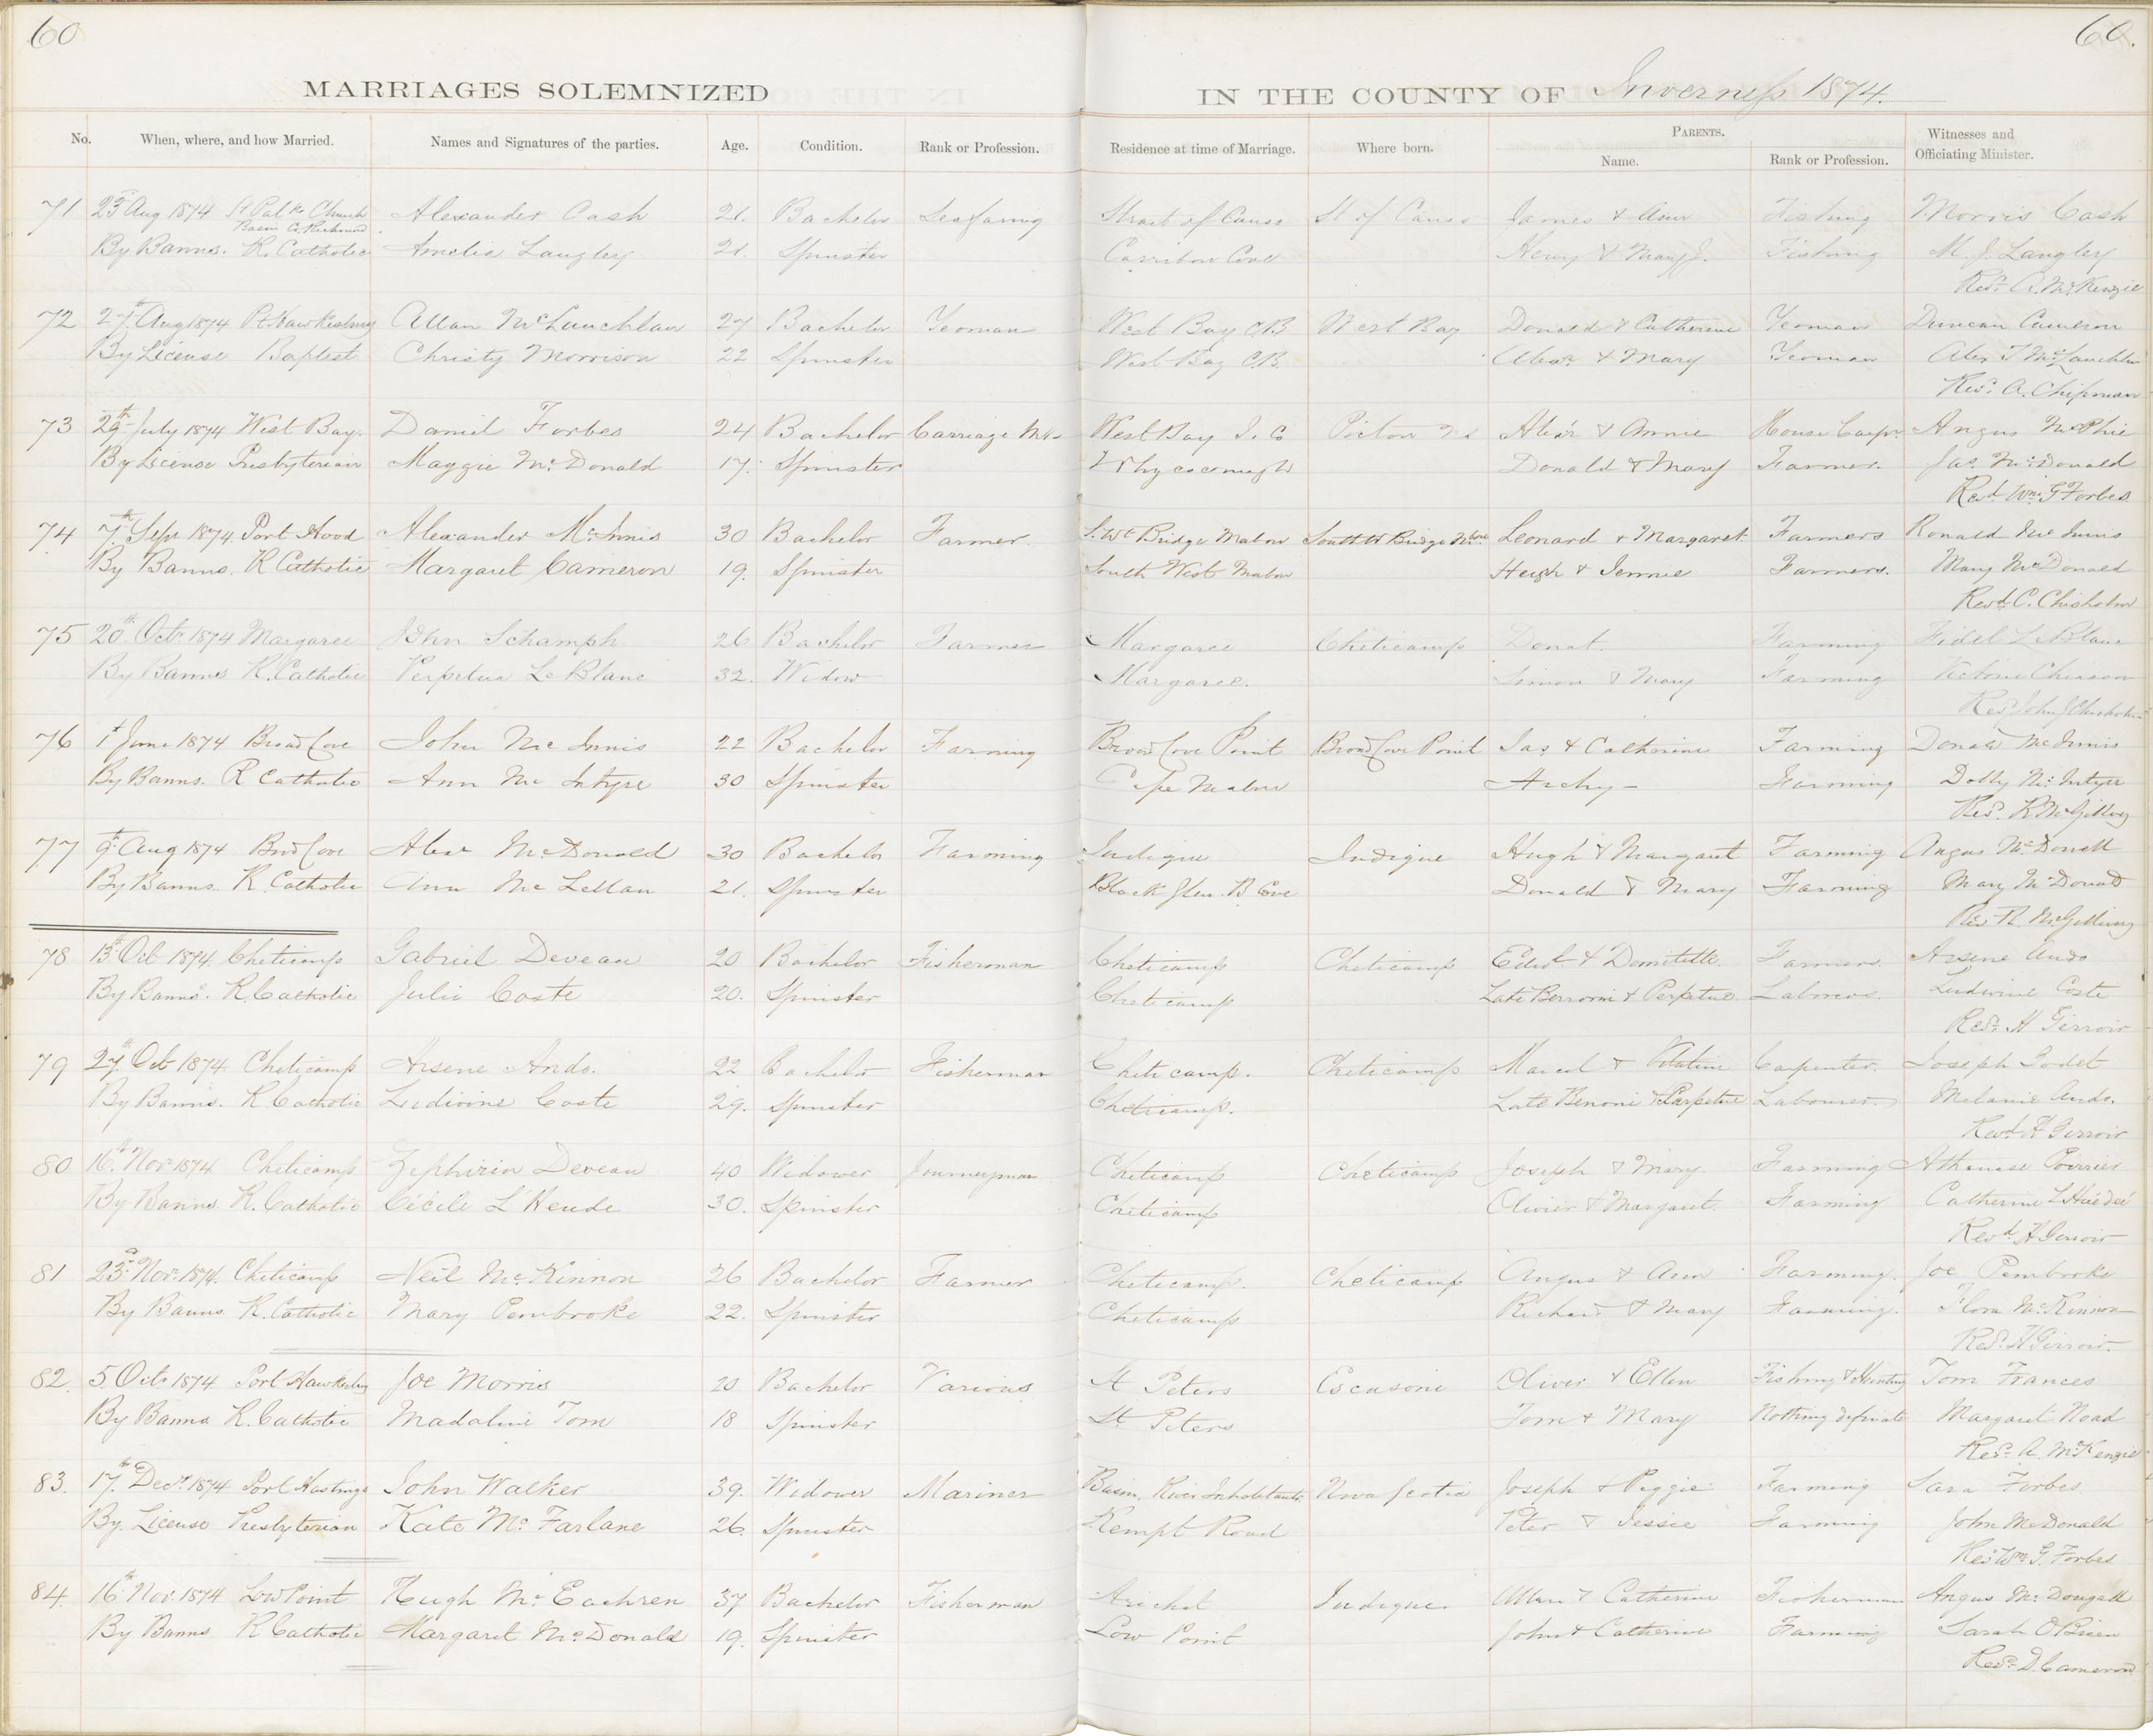 60
60.
MARRIAGES SOLEMNIZED IN THE COUNTY OF Inverness 1874.
No. When, where, and how Married. Names and Signatures of the parties. Age. Condition. Rank or Profession. Residence at time of Marriage. Where born. PARENTS. Name. Rank or Profession. Witnesses and Officiating Minister.
71 23d Aug 1874 St Pat Church Alexander Cash 21. Bachelor Seafaring Strait of Canso St of Canso James & Ann Fishing Morris Cash
Basin Co. Richmond
By Banns. R. Catholic Amelia Langley 21. Spinster Carribou Cove Henry & Mary J. Fishing M. J. Langley
Revd. A. McKenzie
72 27th Aug 1874 Pt Hawkesbury Allan McLauchlan 27 Bachelor Yeoman West Bay C.B. West Bay Donald & Catherine Yeoman Duncan Cameron
By License Baptist Christy Morrison 22 Spinster West Bay C.B. Alexr. & Mary Yeoman Alex T. McLauchlin
Revd. A. Chipman
73 29th July 1874 West Bay. Daniel Forbes 24 Bachelor Carriage Mkr West Bay I. Co Pictou NS Alexr & Annie House Carpr. Angus McPhie
By License Presbyterian Maggie McDonald 17. Spinster Whycocomagh Donald & Mary Farmer. Jas. McDonald
Revd. Wm. G Forbes
74 7th Sept 1874 Port Hood Alexander McInnis 30 Bachelor Farmer. S. Wt Bridge Mabou South W Bridge Mbou Leonard & Margaret Farmers Ronald McInnis
By Banns. R Catholic Margaret Cameron 19. Spinster South West Mabou Hugh & Jennie Farmers. Mary McDonald
Revd. C. Chisholm
75 20th Octr 1874 Margaree John Schamph 26 Bachelor Farmer Margaree Cheticamp Donat. Farming Fidel LeBlanc
By Banns R. Catholic Perpetua LeBlanc 32. Widow Margaree. Simon & Mary Farming Victorie Chiasson
Revd John J Chisholm
76 1st June 1874 Broad Cove John McInnis 22 Bachelor Farming Broad Cove Point Broad Cove Point Jas & Catherine Farming Donald McInnis
By Banns. R Catholic Ann McIntyre 30 Spinster Cape Mabou Archy - Farming Dolly McIntyre
Revd. R McGillvry
77 9th Aug 1874 Brd Cove Alexr McDonald 30 Bachelor Farming Judique Judique Hugh & Margaret Farming Angus McDonell
By Banns. R. Catholic Ann McLellan 21. Spinster Black Glen. B Cove Donald & Mary Farming Mary McDonald
Rev R. McGillivry
78 13th Oct 1874. Cheticamp Gabriel Deveau 20 Bachelor Fisherman Cheticamp Cheticamp Edwd. & Domitille Farmers. Arsene Audo
By Banns. R. Catholic Julie Coste 20. Spinster Cheticamp Late & Perpetue Laborers. Ludivine Coste
Revd. H Girroir
79 27th Oct 1874. Cheticamp Arsene Ando. 22 Bachelor Fisherman Cheticamp. Cheticamp Marcel & Vitaline Carpenter. Joseph Godet
By Banns. R. Catholic Ludivine Coste 29. Spinster Cheticamp. Late Benoni & Perpetue Labourer. Melanie Audo.
Revd. H Girroir
80 16th Nov 1874 Cheticamp Zephirin Deveau 40 Widower Journeyman Cheticamp Cheticamp Joseph & Mary. Farming Athanase Poirrier
By Banns R. Catholic Cécile L'Heude 30. Spinster Cheticamp Olivier & Margaret. Farming Catherine
Revd. H Girroir
81 23d Novr. 1874. Cheticamp Neil McKinnon 26 Bachelor Farmer Cheticamp. Cheticamp Angus & Ann Farming. Joe Pembroke
By Banns R. Catholic Mary Pembroke 22. Spinster Cheticamp Richard & Mary Farming. Flora McKinnon
Revd. H Girroir.
82. 5 Octr 1874 Port Hawkesbry Joe Morris 20 Bachelor Various St Peters Escasoni Oliver & Ellen Fishing & Hunting Tom Frances
By Banns R. Catholic Madaline Tom 18 Spinster St. Peters Tom & Mary Nothing definate Margaret Noad
Revd. A. McKenzie
83. 17th Decr. 1874 Port Hastings John Walker 39. Widower Mariner Basin, River Inhabitants Nova Scotia Joseph & Peggie Farming Sara Forbes.
By License Presbyterian Kate McFarlane 26. Spinster Kempt Road Peter & Jessie Farming John McDonald
Revd Wm G. Forbes
84. 16th Nov. 1874 Low Point Hugh McEachren 37 Bachelor Fisherman Arichat Judique. Allan & Catherine Fisherman Angus McDougall
By Banns R Catholic Margaret McDonald 19. Spinster Low Point John & Catherine Farming Sarah OBrien
Revd. D. Cameron